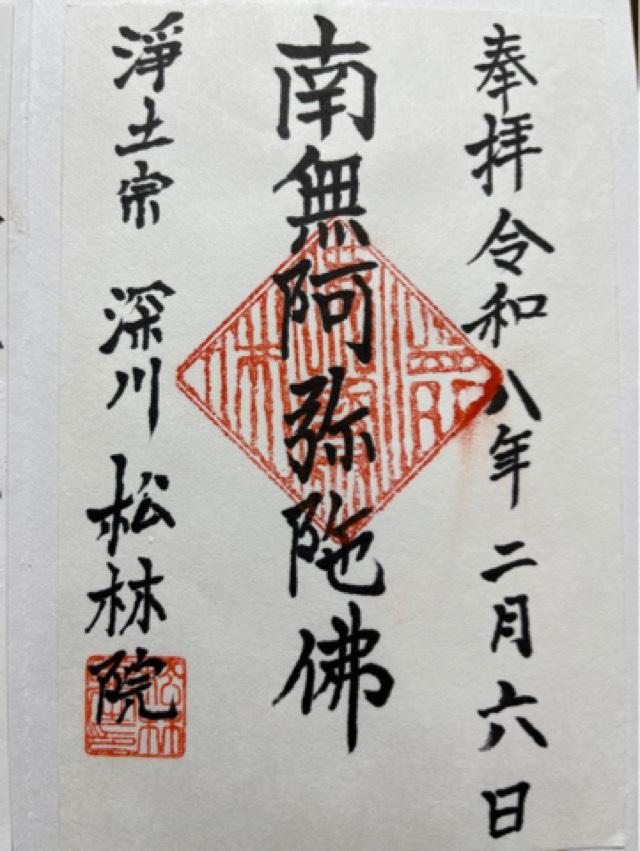 奉拝 令和八年二月六日
南無阿弥陀佛
淨土宗 深川 松林院